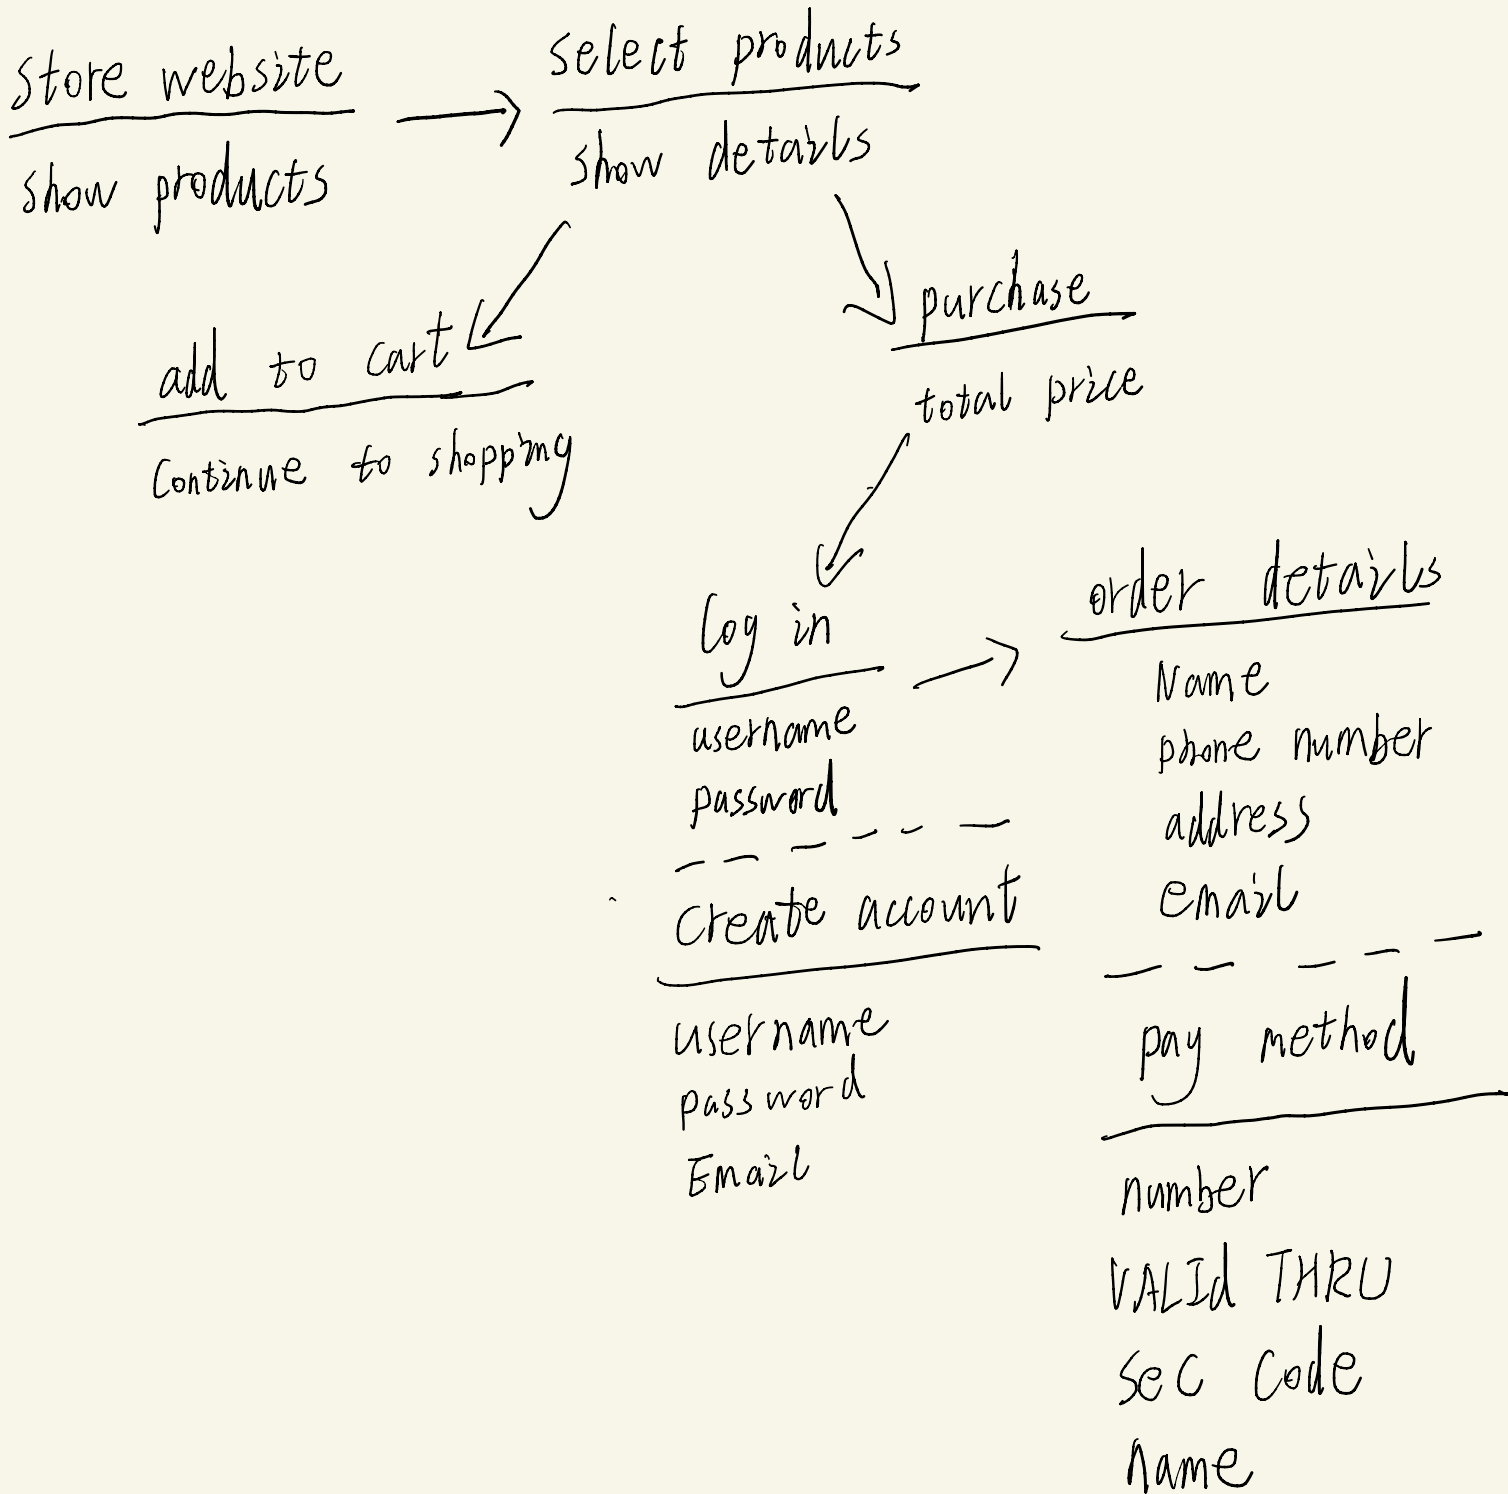 Store website
show products
select products
show details
add to cart
Continue to shopping
purchase
total price
Log in
username
password
Create account
username
password
Email
order details
Name
phone number
address
email
pay method
number
VALId THRU
Sec Code
name